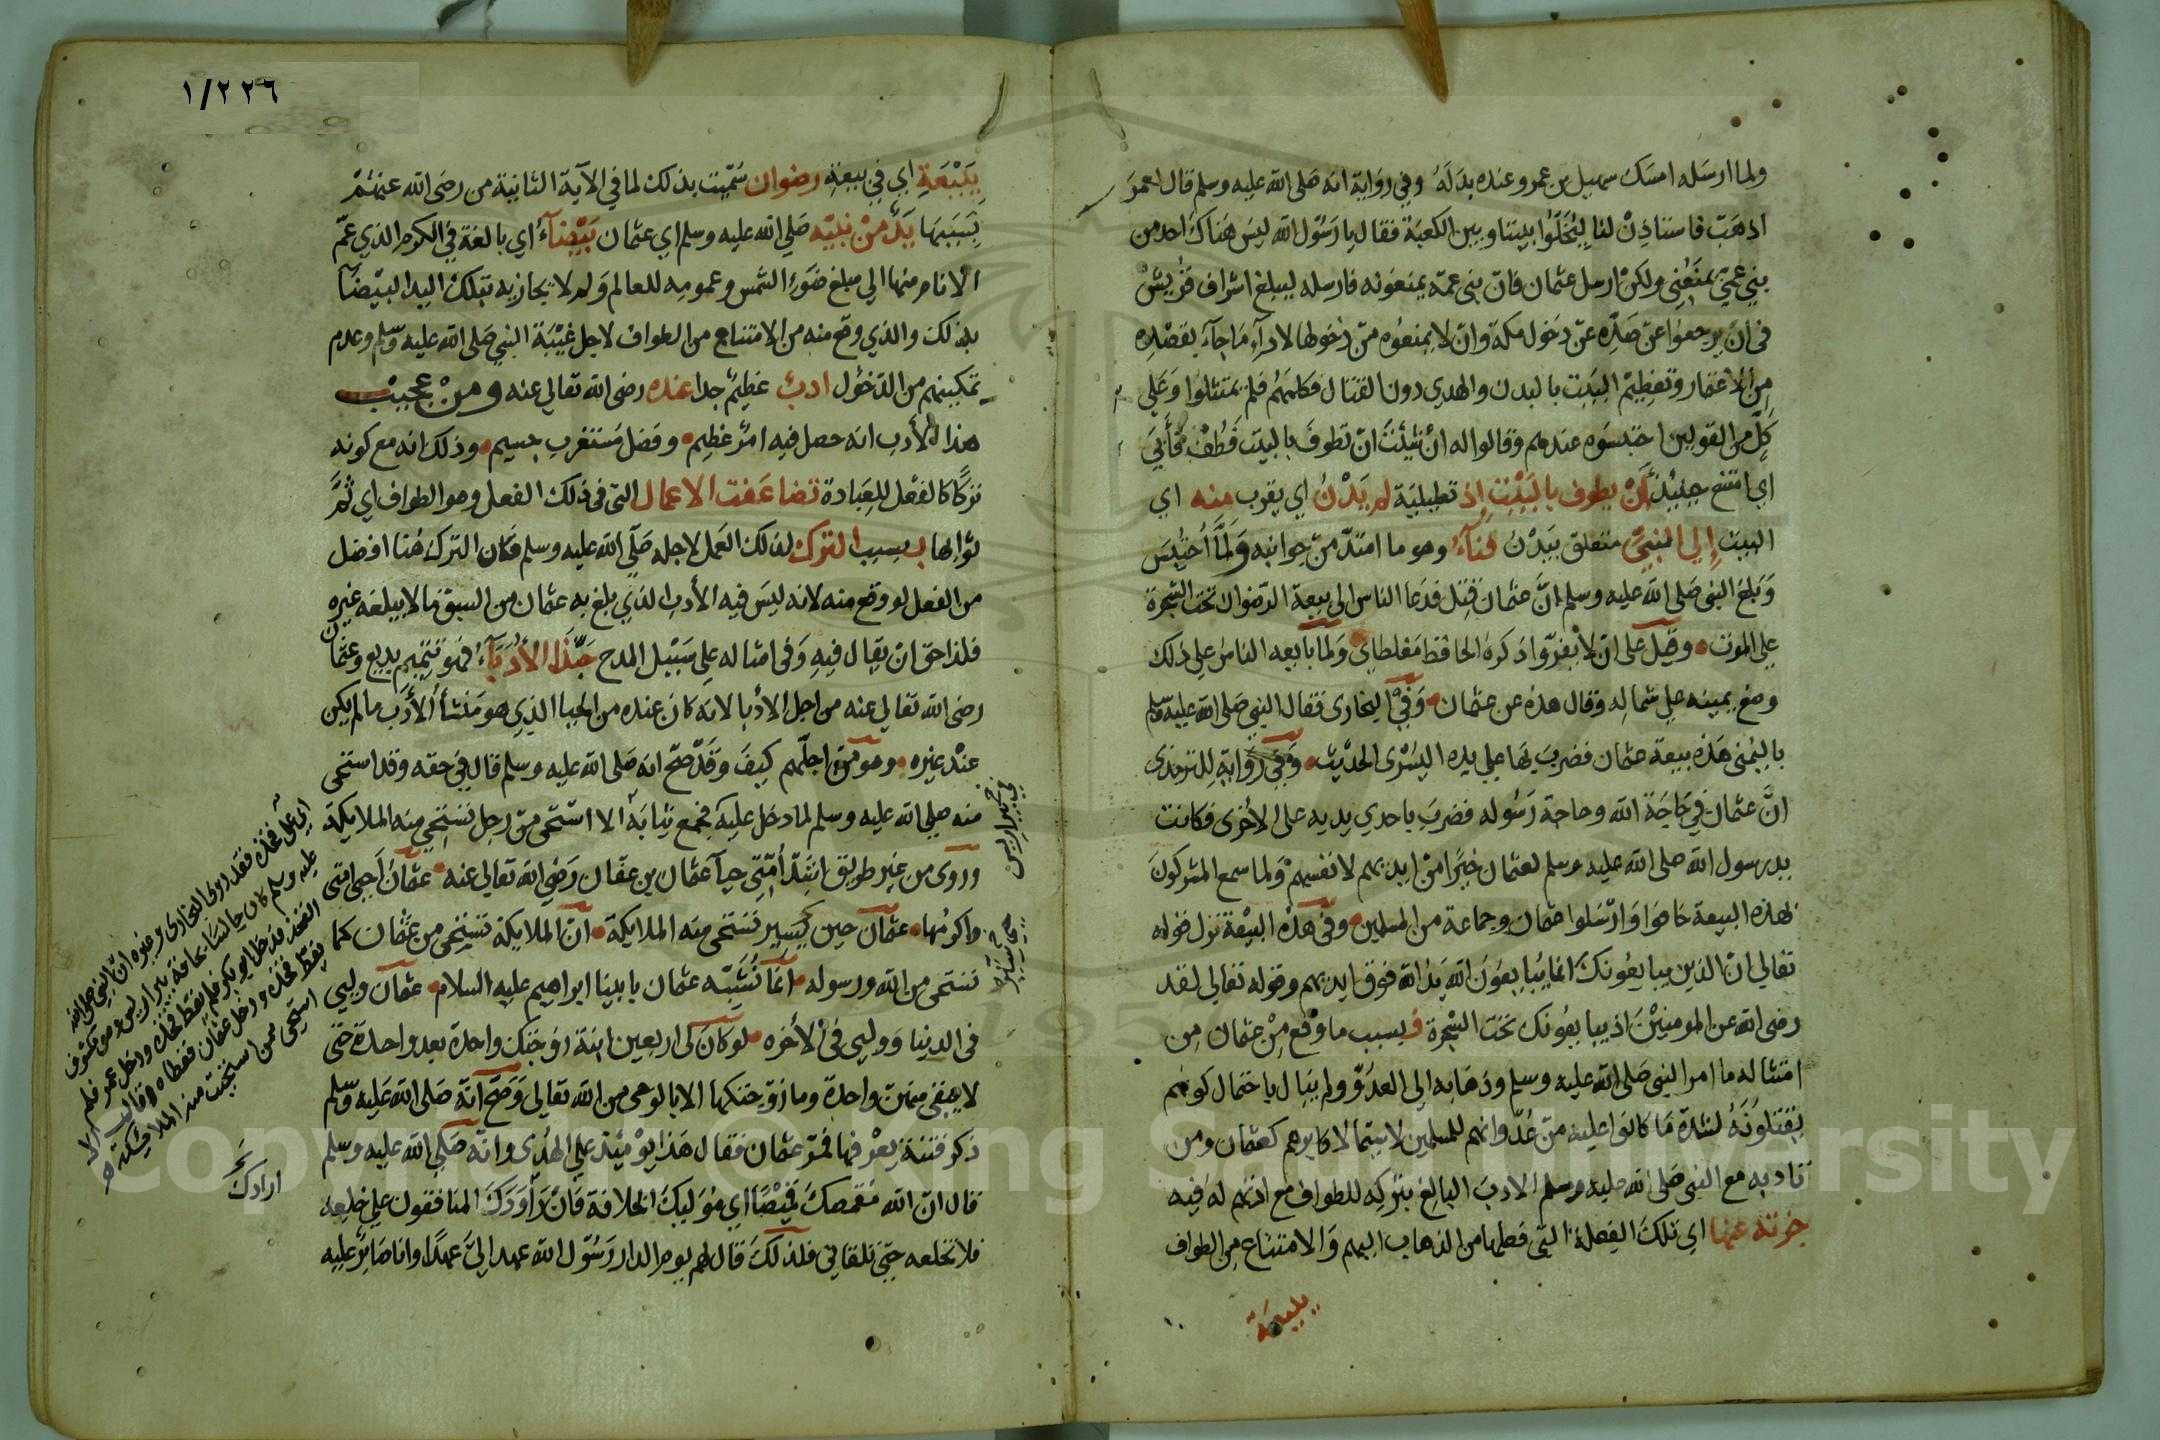 ولما ارسله امسك سهيل بن عمرو عنده بدله وفي رواية انه صلى الله عليه وسلم قال لعمر
اذهب فاستاذن لنا ليخلوا بيننا وبين الكعبة فقال يا رسول الله ليس هناك احد من
بني عمي يمنعني ولكن ارسل عثمان فان بني عمه يمنعونه فارسله ليبلغ اشراف قريش
في ان يرجعوا عن صده عن دخول مكة وان لا يمنعوه من دخولها لاداء ما جاء بقصده
من الاعتمار وتعظيم البيت بالبدن والهدي دون القتال فكلمهم فلم يمتثلوا وعلى
كل من القولين احتبسوه عندهم وقالوا له ان شئت ان تطوف بالبيت فطف فأبى
اي امتنع حينئذ أن يطوف بالبيت إذ تعليلية لم يدن اي يقرب منه اي
البيت إلى النبي متعلق بيدن فناء وهو ما امتد من جوانبه ولما احتبس
وبلغ النبي صلى الله عليه وسلم ان عثمان قتل فدعا الناس الى بيعة الرضوان تحت الشجرة
على الموت وقيل على ان لا يفروا ذكره الحافظ مغلطاي ولما بايعه الناس على ذلك
وضع يمينه على شماله وقال هذه عن عثمان وفي البخاري فقال النبي صلى الله عليه وسلم
باليمنى هذه بيعة عثمان فضرب بها على يده اليسرى الحديث وفي رواية للترمذي
ان عثمان في حاجة الله وحاجة رسوله فضرب باحدي يديه على الاخرى فكانت
يد رسول الله صلى الله عليه وسلم لعثمان خيرا من ايديهم لانفسهم ولما سمع المشركون
بهذه البيعة خافوا وارسلوا عثمان وجماعة من المسلمين وفي هذه البيعة نزل قوله
تعالى ان الذين يبايعونك انما يبايعون الله يد الله فوق ايديهم وقوله تعالى لقد
رضي الله عن المومنين اذ يبايعونك تحت الشجرة فبسبب ما وقع من عثمان من
امتثاله ما امر النبي صلى الله عليه وسلم وذهابه الى العدو ولم يبال باحتمال كونهم
يقتلونه لشدة ما كانوا عليه من عدوانهم للمسلمين لاسيما لاكابرهم كعثمان ومن
تادبه مع النبي صلى الله عليه وسلم الادب البالغ بتركه للطواف مع اذنهم له فيه
جزته عنها اي تلك الفعلة التي فعلها من الذهاب اليهم والامتناع من الطواف
ببيعة
١/٢٢٦
بِبَيْعَةِ اي في بيعة رضوان سميت بذلك لما في الآية الثانية من رضى الله عنهم
بسببها يد من نبيه صلى الله عليه وسلم اي عثمان بيضاء اي بالغة في الكرم الذي عم
الانام منها الى مبلغ ضوء الشمس وعمومه للعالم ولم لا يجازيه بتلك اليد البيضا
بذلك والذي وقع منه من الامتناع من الطواف لاجل غيبة النبي صلى الله عليه وسلم وعدم
تمكينهم من الدخول ادب عظيم جدا عنده رضى الله تعالى عنه ومن عجيب
هذا الأدب انه حصل فيه امر عظيم وفضل مستغرب جسيم وذلك انه مع كونه
تركا كالفعل للعبادة تضاعفت الاعمال التي في ذلك الفعل وهو الطواف اي
ثوابها ب بسبب الترك لذلك العمل لاجله صلى الله عليه وسلم فكان الترك هنا افضل
من الفعل لو وقع منه لانه ليس فيه الأدب الذي بلغ به عثمان من السبق ما لا يبلغه غيره
فلذا حق ان يقال فيه وفي امثاله على سبيل المدح حبذا الأدباء فهو تتميم بديع وعثمان
رضى الله تعالى عنه من اجل الادبا لانه كان عنده من الحيا الذي هو منشأ الأدب ما لم يكن
عند غيره وهو من اجلهم كيف وقد صح انه صلى الله عليه وسلم قال في حقه وقد استحى
منه صلى الله عليه وسلم لما دخل عليه فجمع ثيابه ألا استحى من رجل تستحي منه الملايكة
وروى من غير طريق اشد أمتي حيآ عثمان بن عفان رضي الله تعالى عنه عثمان أحيى امتي
واكرمها عثمان حيي ستير تستحي منه الملايكة ان الملايكة تستحي من عثمان كما
تستحي من الله ورسوله انما نشبه عثمان بابينا ابراهيم عليه السلام عثمان وليي
في الدنيا ووليي في الأخره لو كان لي اربعين ابنة زوجتك واحدة بعد واحدة حتى
لا يبقى منهن واحدة وما زوجتكها الا بالوحى من الله تعالى وصح انه صلى الله عليه وسلم
ذكر فتنة يعرفها فمر عثمان فقال هذا يومئذ على الهدى وانه صلى الله عليه وسلم
قال ان الله مقمصك قميصا اي موليك الخلافة فان راودك المنافقون على خلعه
فلا تخلعه حتى تلقاني فلذلك قال لهم يوم الدار رسول الله عهد الي عهدا وانا صابر عليه
اي على فخذه فقد روى البخاري وغيره ان النبي صلى الله
عليه وسلم كان جالسا بحافة بئر اريس وهو مكشوف
الفخذ فدخل ابو بكر فلم يغط فخذه ودخل عمر فلم
يغط فخذه ودخل عثمان فغطاه وقال
استحي ممن استحيت منه الملائكة
ارادك